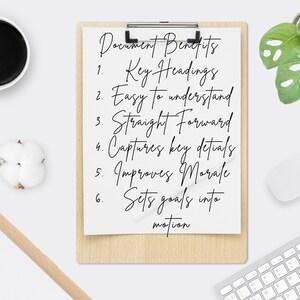 Document Benefits
1. Key Headings
2. Easy to understand
3. Straight Forward
4. Captures key detials
5. Improves Morale
6. Sets goals into
motion